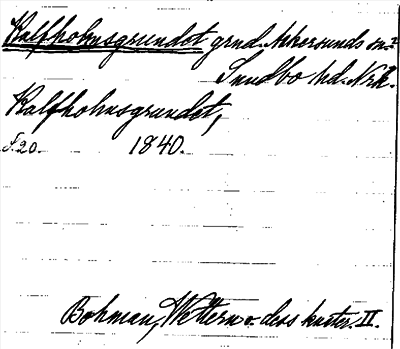 Kalfholmsgrundet grnd. Åkersunds sn?
Sundbo hd. Nrk?
Kalfholmsgrundet,
S. 20. 1840.
Bohman, Wettern o. dess kuster. II.